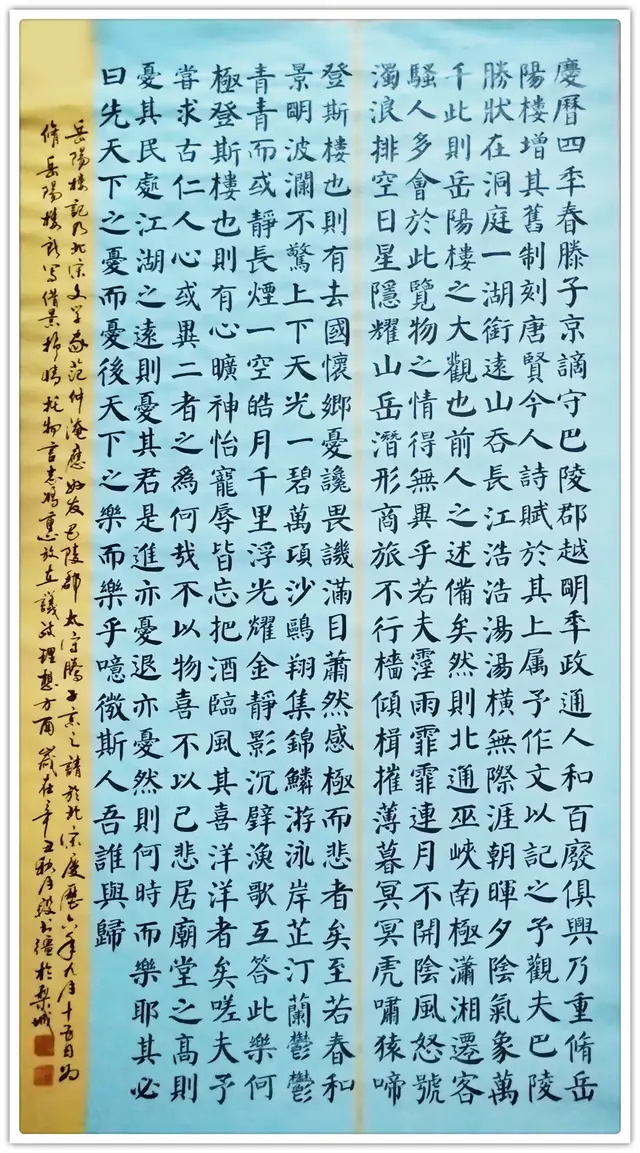 慶曆四季春滕子京謫守巴陵郡越眀季政通人和百廢俱興乃重脩岳
陽樓增其舊制刻唐賢今人詩賦於其上属予作文以記之予觀夫巴陵
勝狀在洞庭一湖銜遠山吞長江浩浩湯湯橫無際涯朝暉夕陰氣象萬
千此則岳陽樓之大觀也前人之述備矣然則北通巫峽南極瀟湘遷客
騷人多會於此覽物之情得無異乎若夫霪雨霏霏連月不開陰風怒號
濁浪排空日星隱耀山岳潛形商旅不行檣傾楫摧薄暮冥冥虎嘯猿啼
登斯樓也則有去國懷鄉憂讒畏譏滿目蕭然感極而悲者矣至若春和
景眀波瀾不驚上下天光一碧萬項沙鷗翔集錦鱗游泳岸芷汀蘭鬱鬱
青青而或靜長煙一空皓月千里浮光耀金靜影沉璧漁歌互答此樂何
極登斯樓也則有心曠神怡寵辱皆忘把酒臨風其喜洋洋者矣嗟夫予
嘗求古仁人心或異二者之為何哉不以物喜不以己悲居廟堂之高則
憂其民處江湖之遠則憂其君是進亦憂退亦憂然則何時而樂耶其必
曰先天下之憂而憂後天下之樂而樂乎噫微斯人吾誰與歸
岳陽樓記乃北宋文学家范仲淹應好友巴陵郡太守滕子京之請於北宋慶曆六年九月十五日为
脩岳陽樓所写借景抒情托物言志重放在議政理想方面 歲在辛丑秋月於梨城